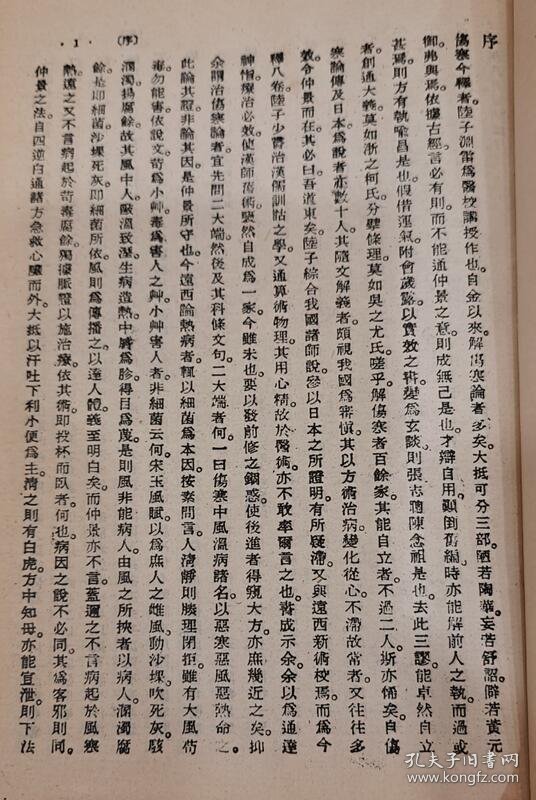 序
傷寒今釋者。陸子淵雷爲醫校講授作也。自金以來。解傷寒論者多矣。大抵可分三部。陋若陶華。妄若舒詔。僻若黃元
御。弗與焉。依據古經。言必有則。而不能通仲景之意。則成無己是也。才辯自用。顚倒舊編。時亦能解前人之執。而過或
甚焉。則方有執喩昌是也。假借運氣。附會歲露。以實效之書。變爲玄談。則張志聰陳念祖是也。去此三謬。能卓然自立
者。創通大義。莫如浙之柯氏。分擘條理。莫如吳之尤氏。嗟乎。解傷寒者百餘家。其能自立者。不過二人。斯亦悕矣。自傷
寒論傳及日本。爲說者亦數十人。其隨文解義者。頗視我國爲審愼。其以方術治病。變化從心。不滯故常者。又往往多
效。令仲景而在。其必曰吾道東矣。陸子綜合我國諸師說。參以日本之所證明。有所疑滯。又與遠西新術校焉。而爲今
釋八卷。陸子少嘗治漢儒訓詁之學。又通算術物理。其用心精。故於醫術亦不敢率爾言之也。書成示余。余以爲通達
神恉。治必效。使漢師舊術褎然自成爲一家。今雖未也。要以發前修之錮惑。使後進者得窺大方。亦庶幾近之矣。抑
余謂治傷寒論者。宜先問二大端。然後及其科條文句。二大端者何。一曰傷寒中風溫病諸名。以惡寒惡風惡熱命之。
此論其證。非論其因。是仲景所守也。今遠西論熱病者。輒以細菌爲本因。按素問言。人清靜則腠理閉拒。雖有大風苛
毒。勿能害。依說文苛爲小艸。毒爲害人之艸。小艸害人者。非細菌云何。宋玉風賦。以爲庶人之雌風。動沙堁。吹死灰。駭
溷濁。揚腐餘。故其風中人。敺溫致溼。生病造熱。中脣爲胗。得目爲蔑。是則風非能病人。由風之所挾者以病人。溷濁腐
餘。是卽細菌。沙堁死灰。卽細菌所依。風則爲傳播之。以達人體。義至明白矣。而仲景亦不言。蓋邇之不言病起於風寒
熱。遠之又不言病起於苛毒腐餘。獨據脈證以施治療。依其術。卽投杯而臥者。何也。病因之說不必同。其爲客邪則同。
仲景之法。自四逆白通諸方急救心臟而外。大抵以汗吐下利小便爲主。清之則有白虎。方中知母。亦能宣泄。則下法
(序)
·1·
孔夫子旧书网
www.kongfz.com